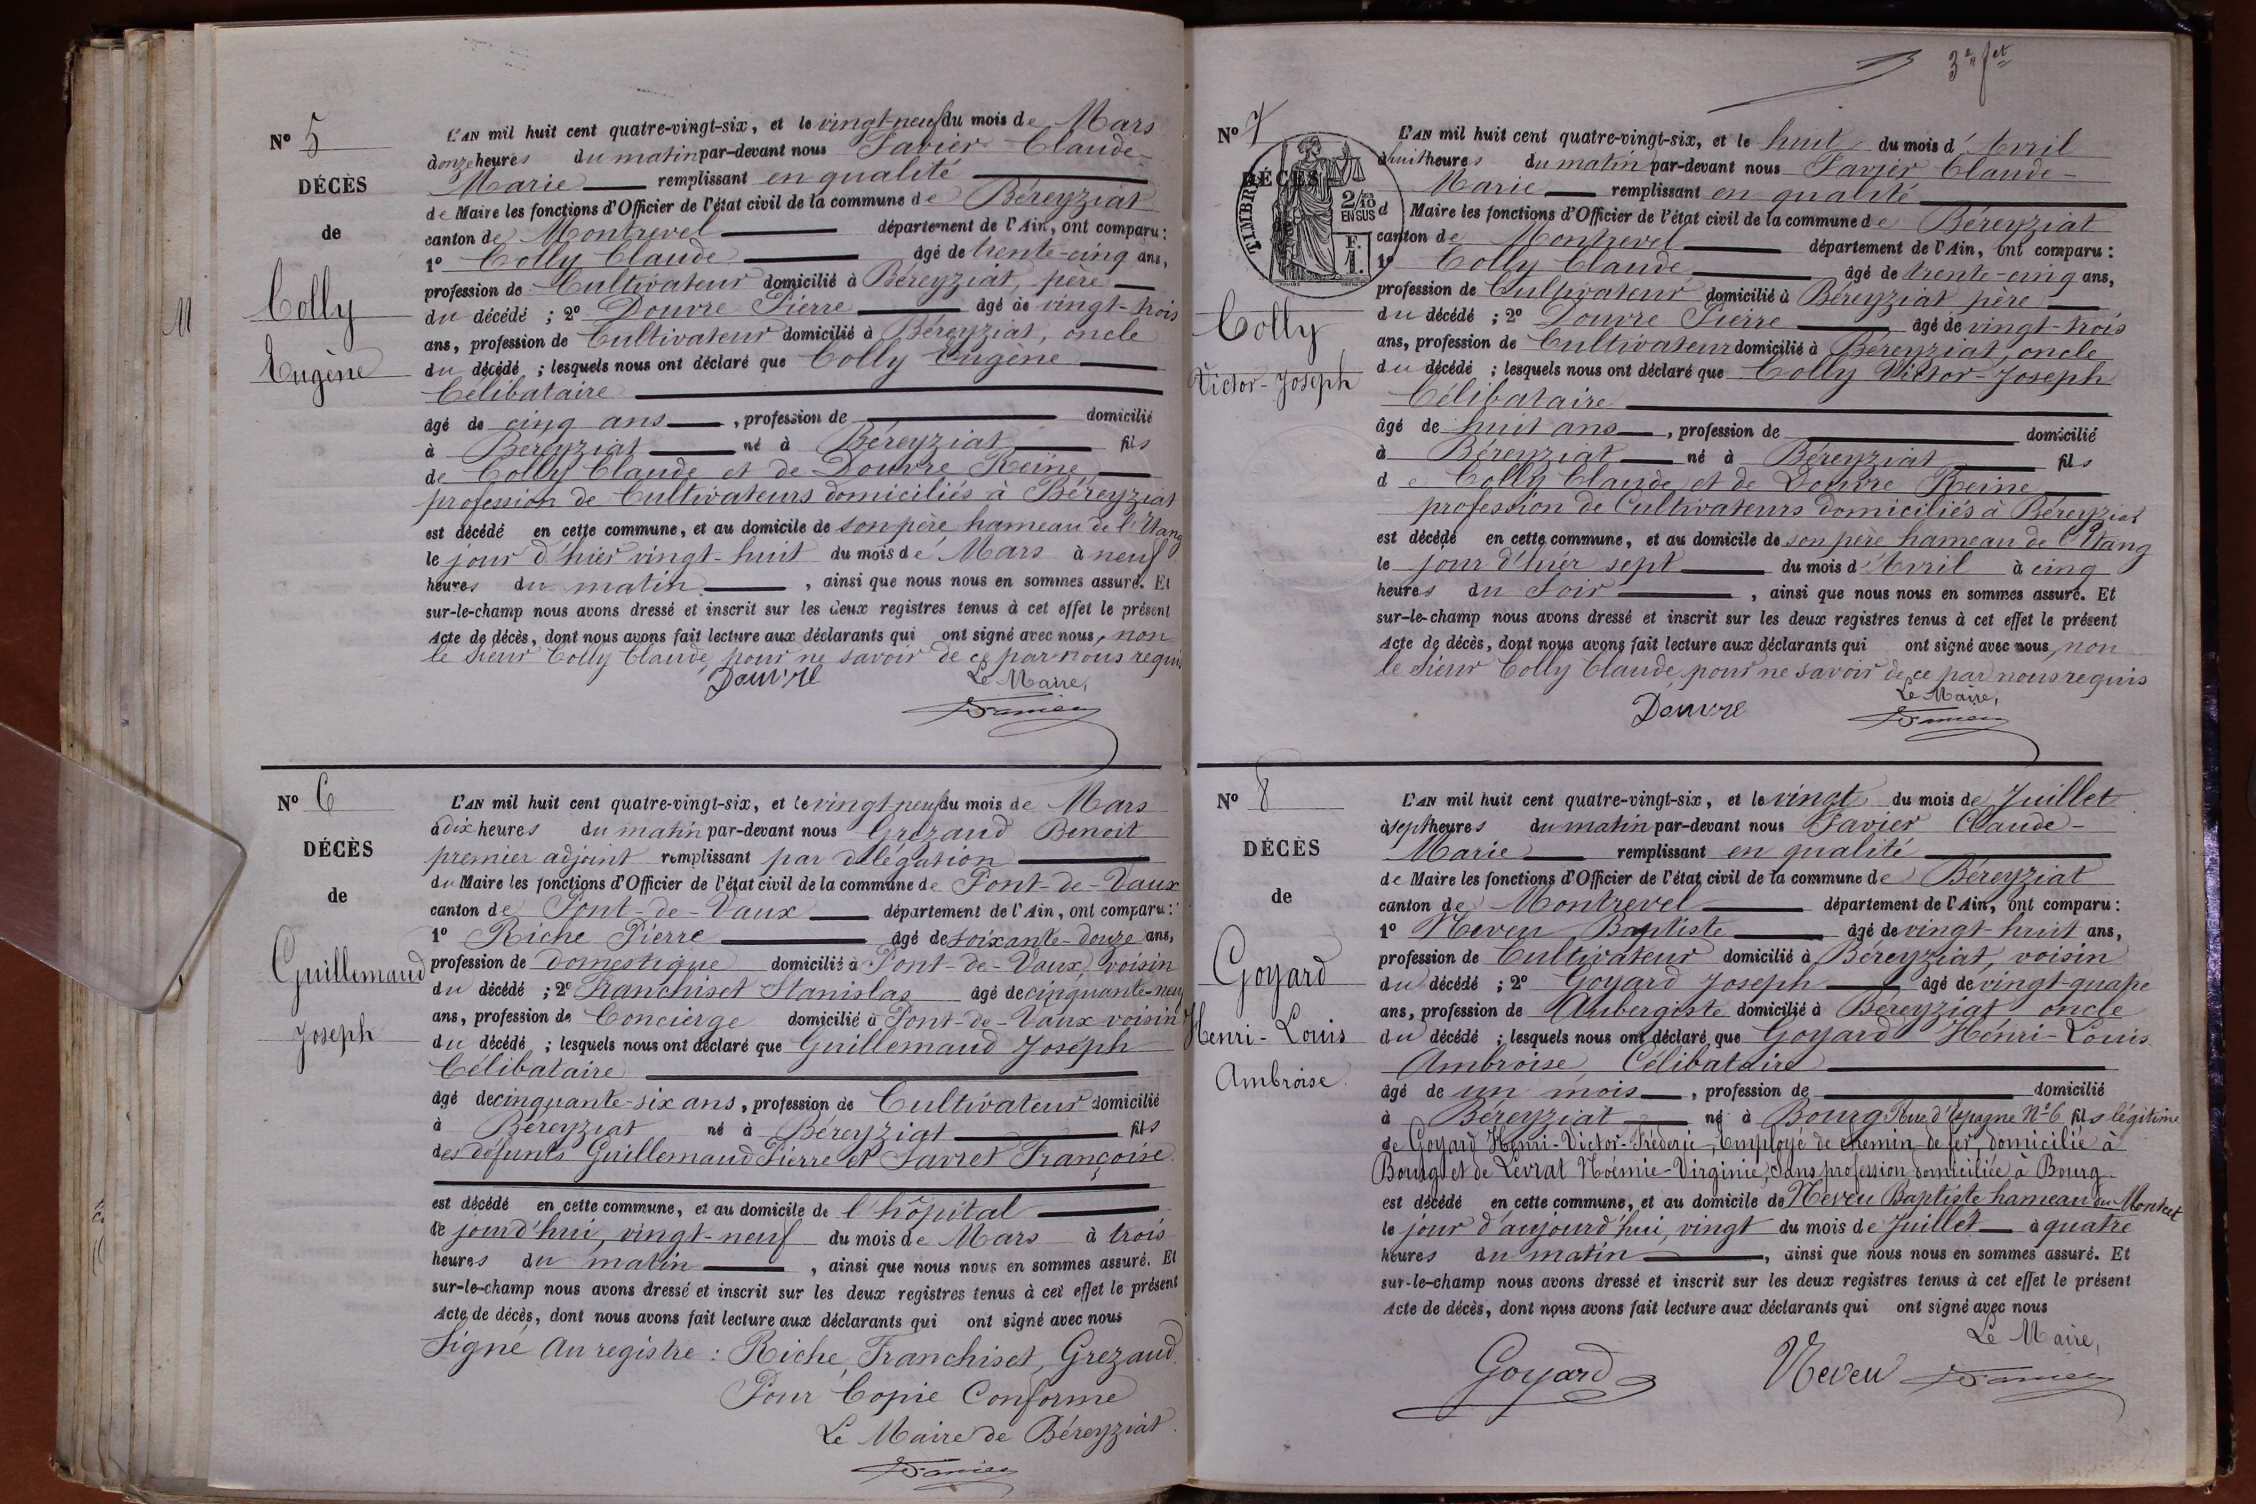 M
N° 5
DÉCÈS
de
Colly
Eugène
L'AN mil huit cent quatre-vingt-six, et le vingt-neuf du mois de Mars
à onze heures du matin par-devant nous Favier Claude-
Marie remplissant en qualité
de Maire les fonctions d'Officier de l'état civil de la commune de Béreyziat
canton de Montrevel département de l'Ain, ont comparu :
1° Colly Claude âgé de trente-cinq ans,
profession de Cultivateur domicilié à Béreyziat, père
du décédé ; 2° Douvre Pierre âgé de vingt-trois
ans, profession de Cultivateur domicilié à Béreyziat, oncle
du décédé ; lesquels nous ont déclaré que Colly Eugène
Célibataire
âgé de cinq ans, profession de domicilié
à Béreyziat né à Béreyziat fils
de Colly Claude et de Douvre Reine
profession de Cultivateurs domiciliés à Béreyziat
est décédé en cette commune, et au domicile de son père hameau de l'Etang
le jour d'hier vingt-huit du mois de Mars à neuf
heures du matin, ainsi que nous nous en sommes assuré. Et
sur-le-champ nous avons dressé et inscrit sur les deux registres tenus à cet effet le présent
Acte de décès, dont nous avons fait lecture aux déclarants qui ont signé avec nous, non
le sieur Colly Claude, pour ne savoir de ce par nous requis
Douvre Le Maire,
Favier
N° 6
DÉCÈS
de
Guillemaud
Joseph
L'AN mil huit cent quatre-vingt-six, et le vingt-neuf du mois de Mars
à dix heures du matin par-devant nous Grezaud Benoit
premier adjoint remplissant par délégation
du Maire les fonctions d'Officier de l'état civil de la commune de Pont-de-Vaux
canton de Pont-de-Vaux département de l'Ain, ont comparu :
1° Riche Pierre âgé de soixante-douze ans,
profession de domestique domicilié à Pont-de-Vaux, voisin
du décédé ; 2° Franchiset Stanislas âgé de cinquante-neuf
ans, profession de Concierge domicilié à Pont-de-Vaux voisin
du décédé ; lesquels nous ont déclaré que Guillemaud Joseph
Célibataire
âgé de cinquante-six ans, profession de Cultivateur domicilié
à Béreyziat né à Béreyziat fils
des défunts Guillemaud Pierre et Favret Françoise
est décédé en cette commune, et au domicile de l'hôpital
le jourd'hui, vingt-neuf du mois de Mars à trois
heures du matin, ainsi que nous nous en sommes assuré. Et
sur-le-champ nous avons dressé et inscrit sur les deux registres tenus à cet effet le présent
Acte de décès, dont nous avons fait lecture aux déclarants qui ont signé avec nous
Signé au registre : Riche, Franchiset, Grezaud.
Pour Copie Conforme
Le Maire de Béreyziat
Favier
3e fet
N° 7
DÉCÈS
TIMBRE
2/10
EN SUS
F.
1.
Colly
Victor-Joseph
L'AN mil huit cent quatre-vingt-six, et le huit du mois d'Avril
à huit heures du matin par-devant nous Favier Claude-
Marie remplissant en qualité
d Maire les fonctions d'Officier de l'état civil de la commune de Béreyziat
canton de Montrevel département de l'Ain, ont comparu :
1° Colly Claude âgé de trente-cinq ans,
profession de Cultivateur domicilié à Béreyziat père
du décédé ; 2° Douvre Pierre âgé de vingt-trois
ans, profession de Cultivateur domicilié à Béreyziat, oncle
du décédé ; lesquels nous ont déclaré que Colly Victor-Joseph
Célibataire
âgé de huit ans, profession de domicilié
à Béreyziat né à Béreyziat fils
de Colly Claude et de Douvre Reine
profession de Cultivateurs domiciliés à Béreyziat
est décédé en cette commune, et au domicile de son père hameau de l'Etang
le jour d'hier sept du mois d'Avril à cinq
heures du soir, ainsi que nous nous en sommes assuré. Et
sur-le-champ nous avons dressé et inscrit sur les deux registres tenus à cet effet le présent
Acte de décès, dont nous avons fait lecture aux déclarants qui ont signé avec nous, non
le sieur Colly Claude, pour ne savoir de ce par nous requis
Le Maire,
Douvre Favier
N° 8
DÉCÈS
de
Goyard
Henri-Louis
Ambroise
L'AN mil huit cent quatre-vingt-six, et le vingt du mois de Juillet
à sept heures du matin par-devant nous Favier Claude-
Marie remplissant en qualité
de Maire les fonctions d'Officier de l'état civil de la commune de Béreyziat
canton de Montrevel département de l'Ain, ont comparu :
1° Neveu Baptiste âgé de vingt-huit ans,
profession de Cultivateur domicilié à Béreyziat, voisin
du décédé ; 2° Goyard Joseph âgé de vingt-quatre
ans, profession de Aubergiste domicilié à Béreyziat oncle
du décédé ; lesquels nous ont déclaré que Goyard Henri-Louis
Ambroise, Célibataire
âgé de un mois, profession de domicilié
à Béreyziat né à Bourg Rue d'Espagne N° 6 fils légitime
de Goyard Henri-Victor-Fréderic, Employé de chemin de fer, domicilié à
Bourg et de Levrat Noémie-Virginie, sans profession domiciliée à Bourg
est décédé en cette commune, et au domicile de Neveu Baptiste hameau du Montcet
le jour d'aujourd'hui, vingt du mois de Juillet à quatre
heures du matin, ainsi que nous nous en sommes assuré. Et
sur-le-champ nous avons dressé et inscrit sur les deux registres tenus à cet effet le présent
Acte de décès, dont nous avons fait lecture aux déclarants qui ont signé avec nous
Le Maire,
Goyard Neveu Favier